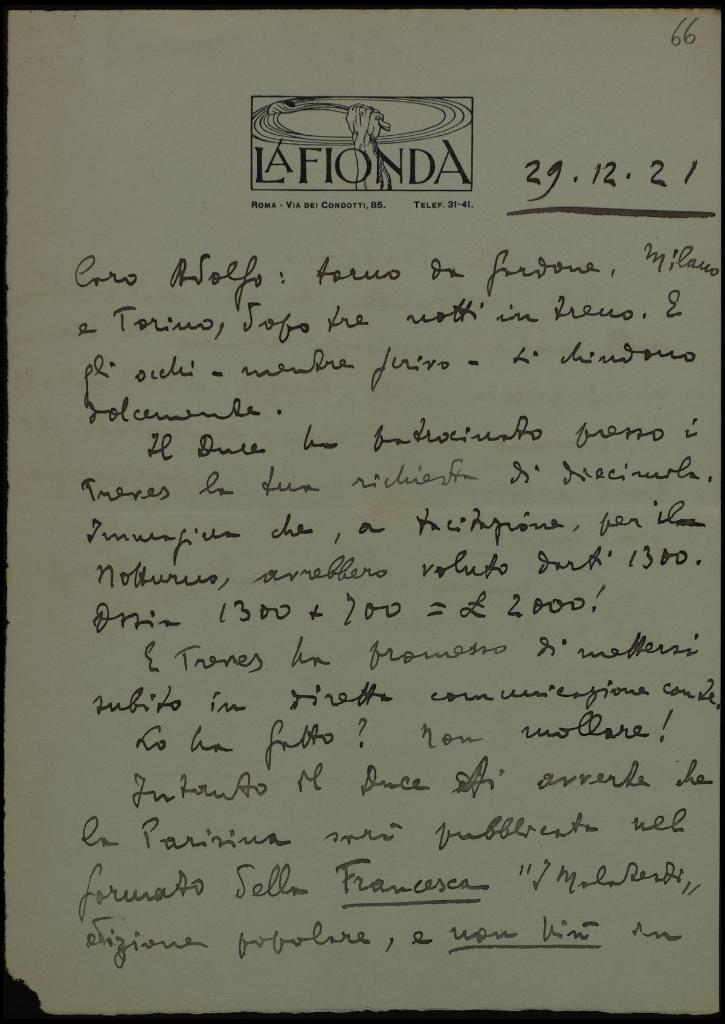 66
LA FIONDA
ROMA - VIA DEI CONDOTTI, 85. TELEF. 31-41.
29.12.21
Caro Adolfo: torno da Gardone, Milano
e Torino, dopo tre notti in treno. E
gli occhi - mentre scrivo - si chiudono
dolcemente.
Il Duce ha patrocinato presso i
Treves la tua richiesta di diecimila.
Immagina che, a tacitazione, per il
Notturno, avrebbero voluto darti 1300.
Ossia 1300 + 700 = £ 2000!
E Treves ha promesso di mettersi
subito in diretta comunicazione con te.
Lo ha fatto? Non mollare!
Intanto il Duce ti avverte che
la Parisina sarà pubblicata nel
formato della Francesca "I Malatesti„
edizione popolare, e non più in